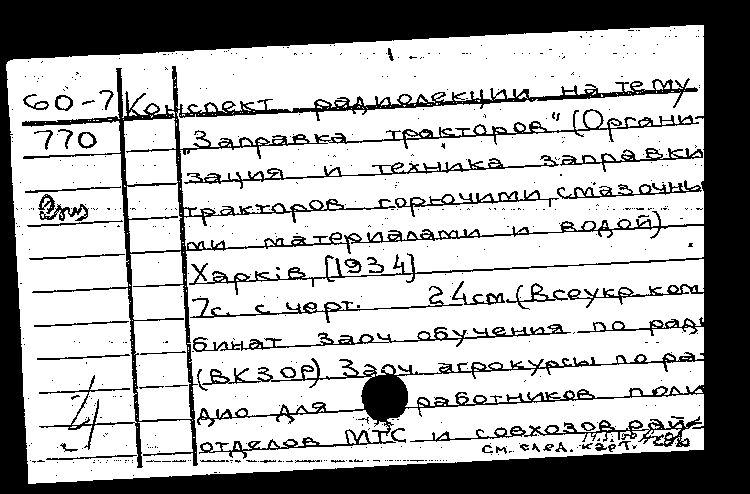 60-7 Конспект радиолекции на тему
770 „Заправка тракторов" (Органи-
зация и техника заправки
тракторов горючими, смазочны
ми материалами и водой)
Харкiв, [1934]
7с. с черт. 24см. (Всеукр. ком
бинат заоч. обучения по ради
(ВКЗОР). Заоч. агрокурсы по ра-
дио для работников поли
отделов МТС и совхозов, рай=
см. след. карт.